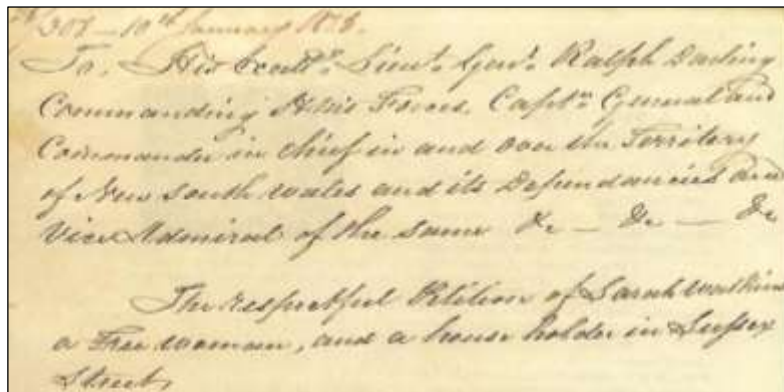 10th January
To. His Excelly. Lieut. Genl. Ralph Darling
Commanding His Forces. Captn. General and
Commander in chief in and over the Territory
of New South Wales and its Dependancies and
Vice Admiral of the same &c — &c — &c
The respectful Petition of Sarah Watkins
a Free woman, and a house holder in Sussex
Street,